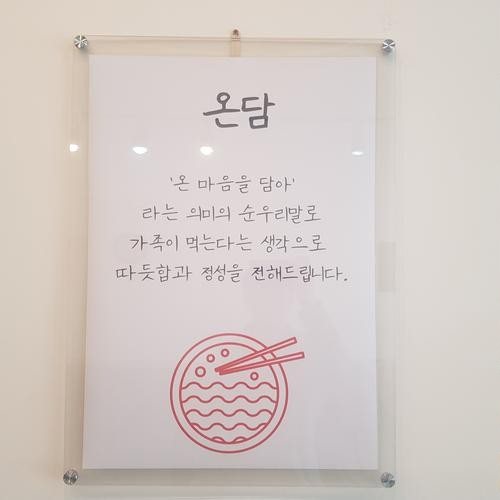 온담
'온 마음을 담아'
라는 의미의 순우리말로
가족이 먹는다는 생각으로
따듯함과 정성을 전해드립니다.